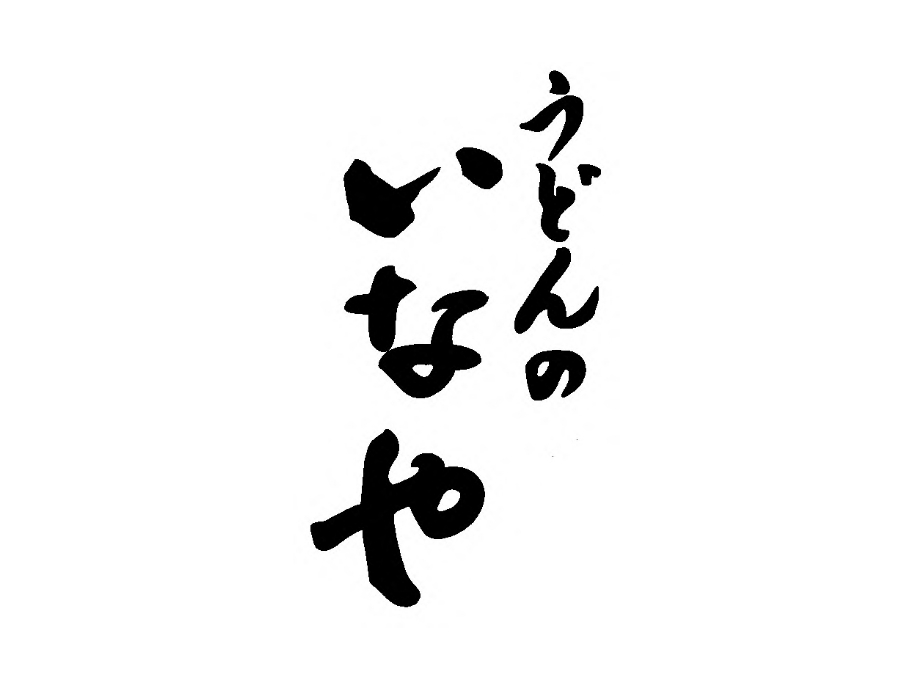 うどんの
いなや